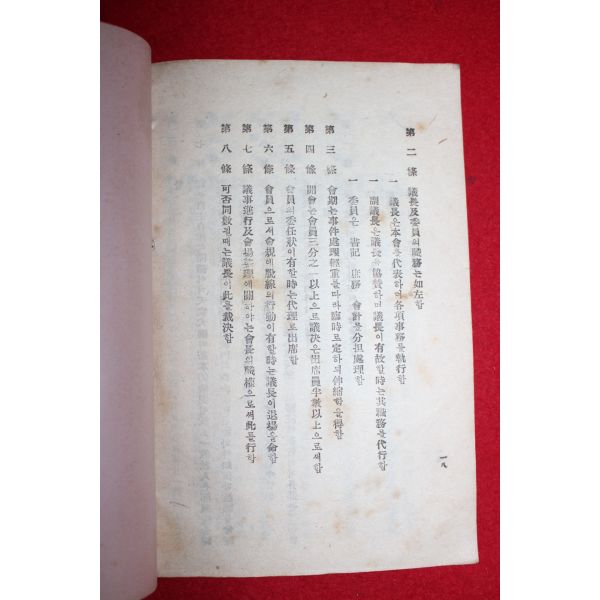 第二條 議長及委員의職務는如左함
一 議長은本會를代表하며各項事務를執行함
一 副議長은議長을協贊하며議長이有故할時는其職務를代行함
一 委員은 書記 庶務 會計를分担處理함
第三條 會期는事件處理輕重을따라臨時로定하되伸縮함을得함
第四條 開會는會員三分之一以上으로議決은出席員半數以上으로써함
第五條 會員의委任狀이有할時는代理로出席함
第六條 會員으로서會規에脫線의行動이有할時는議長이退場을命함
第七條 議事進行及會場整理에關하야는會長의職權으로써此를行함
第八條 可否同數될때는議長이此를裁決함
一八